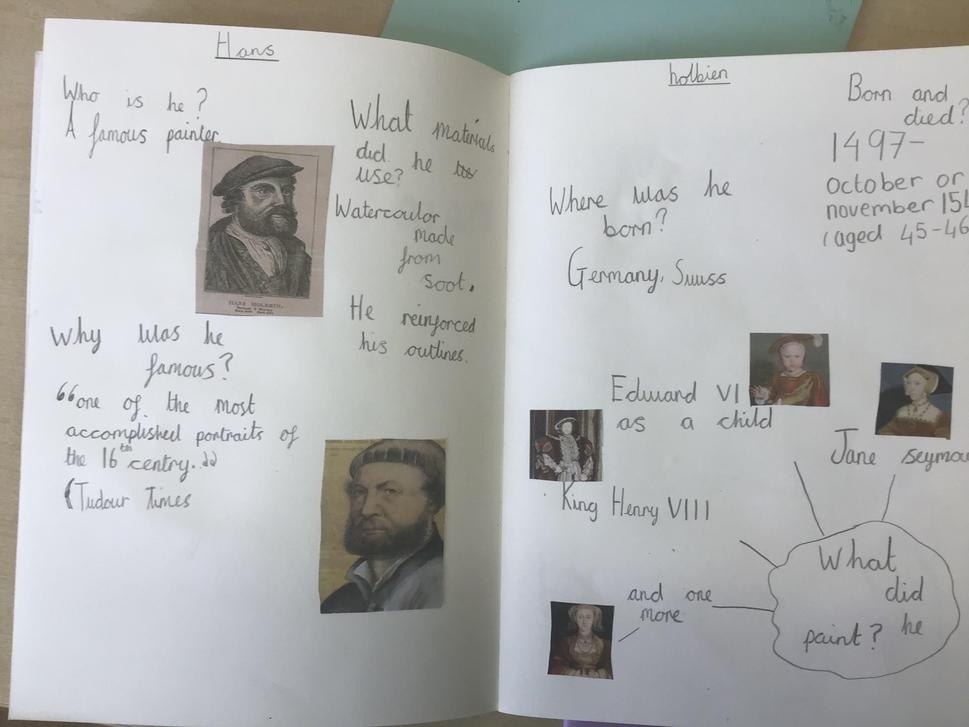 Hans
Who is he?
A famous painter
HANS HOLBEIN.
What materials
did he
use?
Watercoulor
made
from
soot.
He reinforced
his outlines.
Why was he
famous?
"one of the most
accomplished portraits of
the 16th centry."
(Tudour Times
holbien
Born and
died?
1497-
october or
november
(aged 45-46
Where was he
born?
Germany, Swuss
Edward VI
as a child
Jane
King Henry VIII
and one
more
What
did
he
paint?